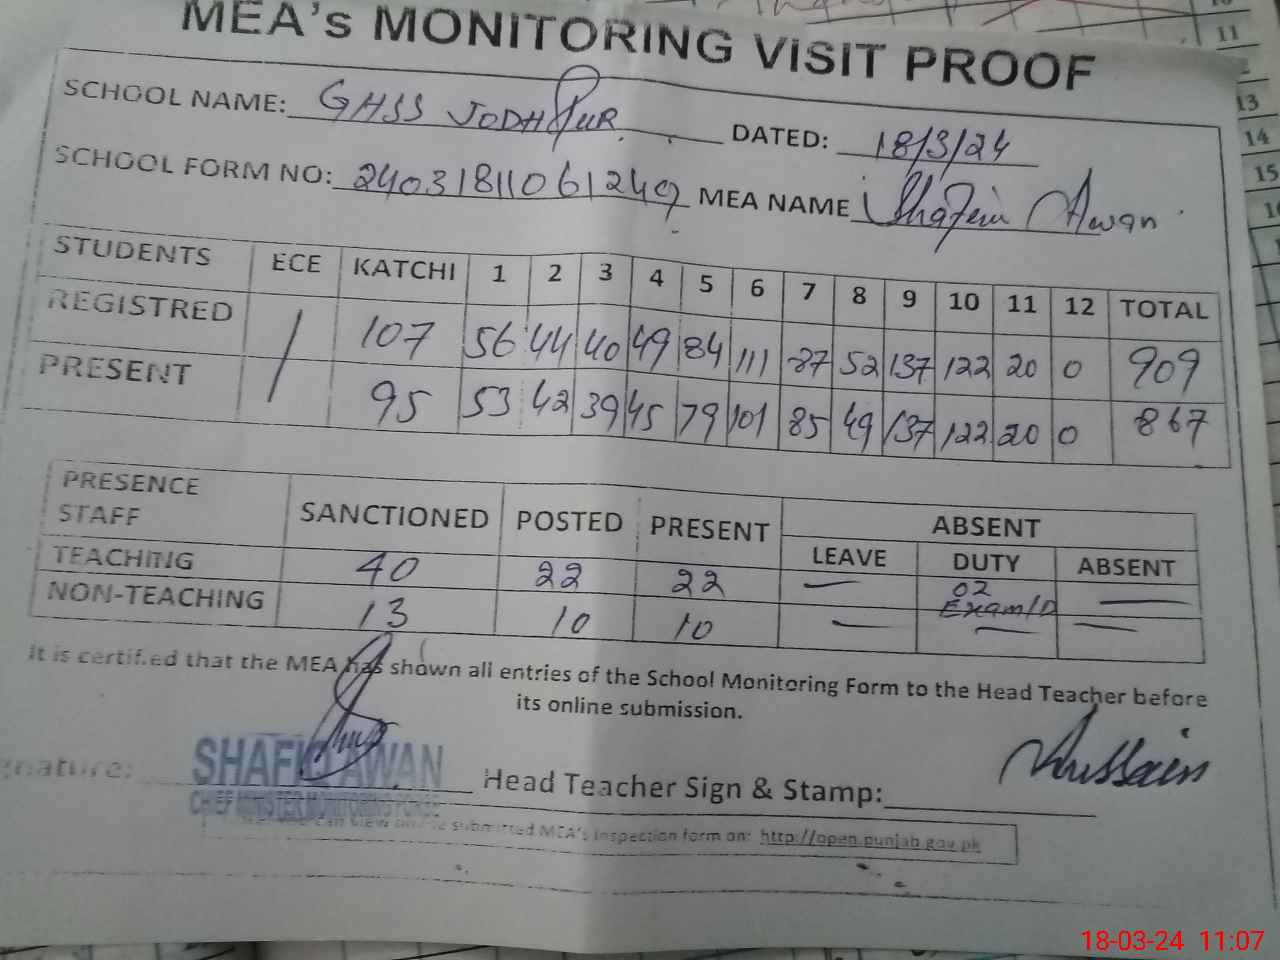 MEA's MONITORING VISIT PROOF
SCHOOL NAME: GHSS JODHPUR. DATED: 18/3/24
SCHOOL FORM NO: 24031811061249 MEA NAME Awan
STUDENTS ECE KATCHI 1 2 3 4 5 6 7 8 9 10 11 12 TOTAL
REGISTRED / 107 56 44 40 49 84 111 87 52 137 122 20 0 909
PRESENT 95 53 42 39 45 79 101 85 49 137 122 20 0 867
PRESENCE STAFF SANCTIONED POSTED PRESENT ABSENT
LEAVE DUTY ABSENT
TEACHING 40 22 22 — 02 Exam/D —
NON-TEACHING 13 10 10 — — —
It is certified that the MEA has shown all entries of the School Monitoring Form to the Head Teacher before
its online submission.
gnature: Head Teacher Sign & Stamp: Hussain
SHAFI AWAN
CHIEF MINISTER MONITORING FORCE
can view submitted MEA's Inspection form on: http://open.punjab.gov.pk
11
13
14
15
18-03-24 11:07